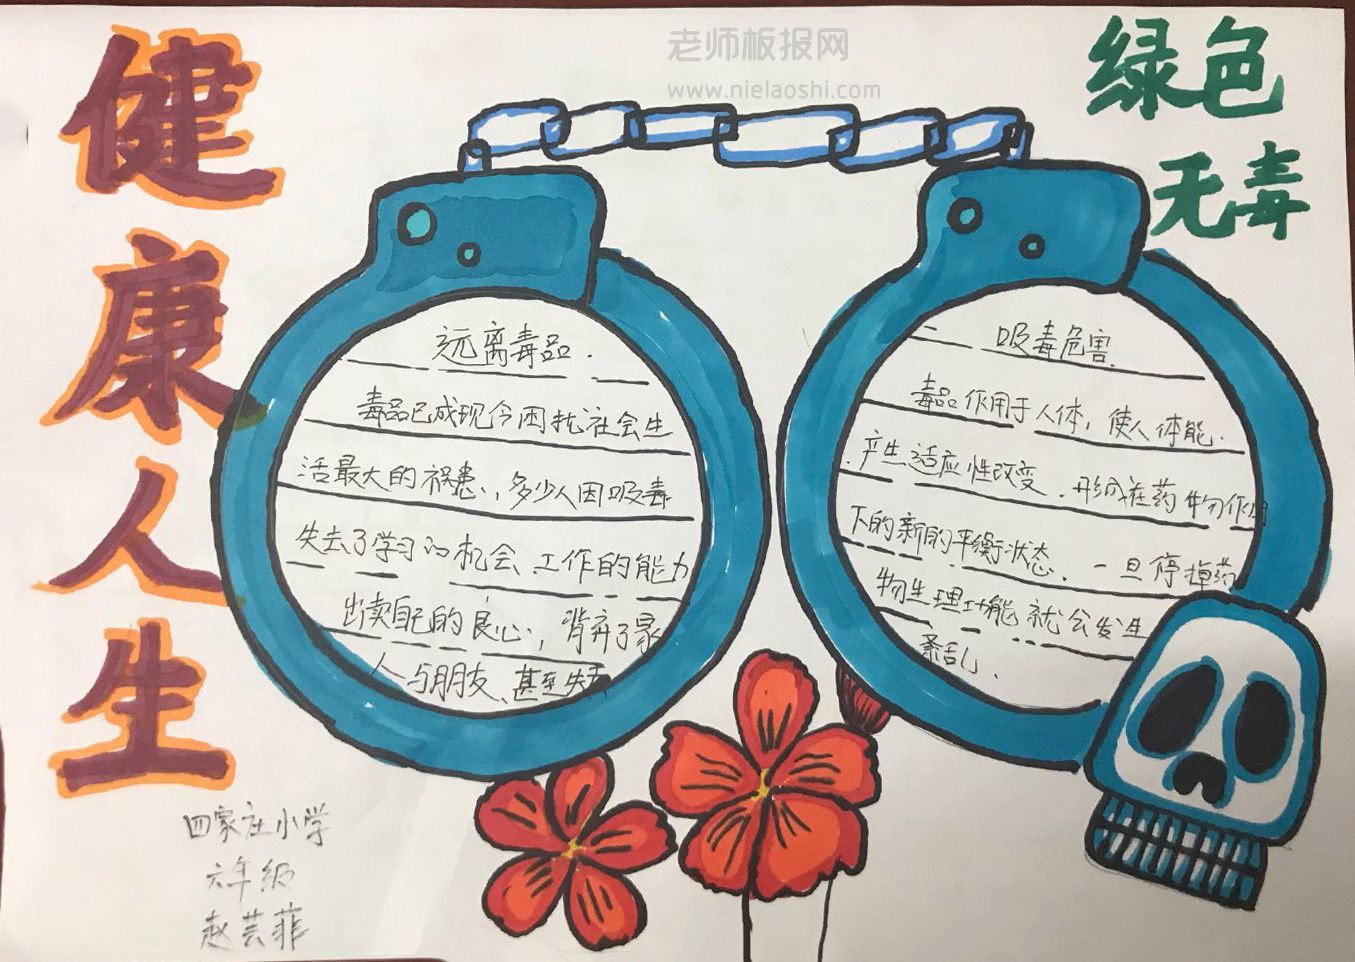 老师板报网
www.nielaoshi.com
健康人生
绿色
无毒
远离毒品.
毒品已成现今困扰社会生
活最大的祸患,多少人因吸毒
失去了学习的机会、工作的能力
出卖自己的良心,背弃了家
人与朋友、甚至失去
吸毒危害
毒品作用于人体,使人体能.
产生适应性改变.形成在药物作用
下的新的平衡状态.一旦停掉药
物生理功能就会发生
紊乱.
四家庄小学
六年级
赵芸菲